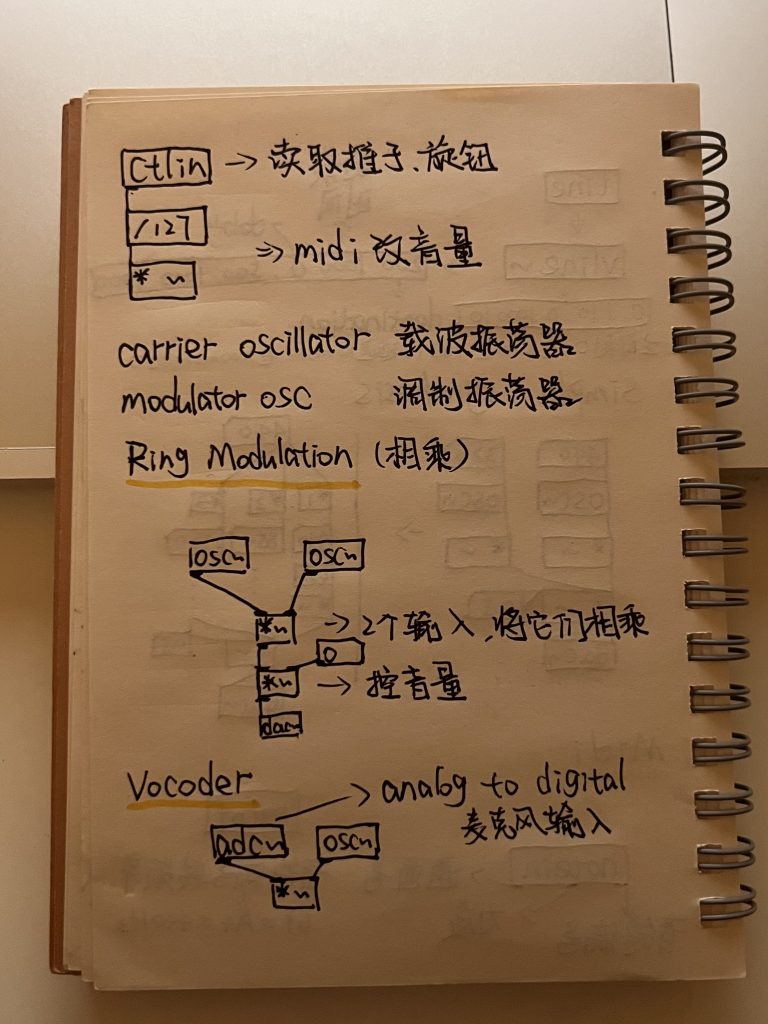 ctlin → 读取推子、旋钮
/127
⇒ midi 改音量
* ~
carrier oscillator 载波振荡器
modulator osc 调制振荡器
Ring Modulation (相乘)
osc~ osc~
*~ → 2个输入,将它们相乘
0
*~ → 控音量
dac~
Vocoder → analog to digital
麦克风输入
adc~ osc~
*~